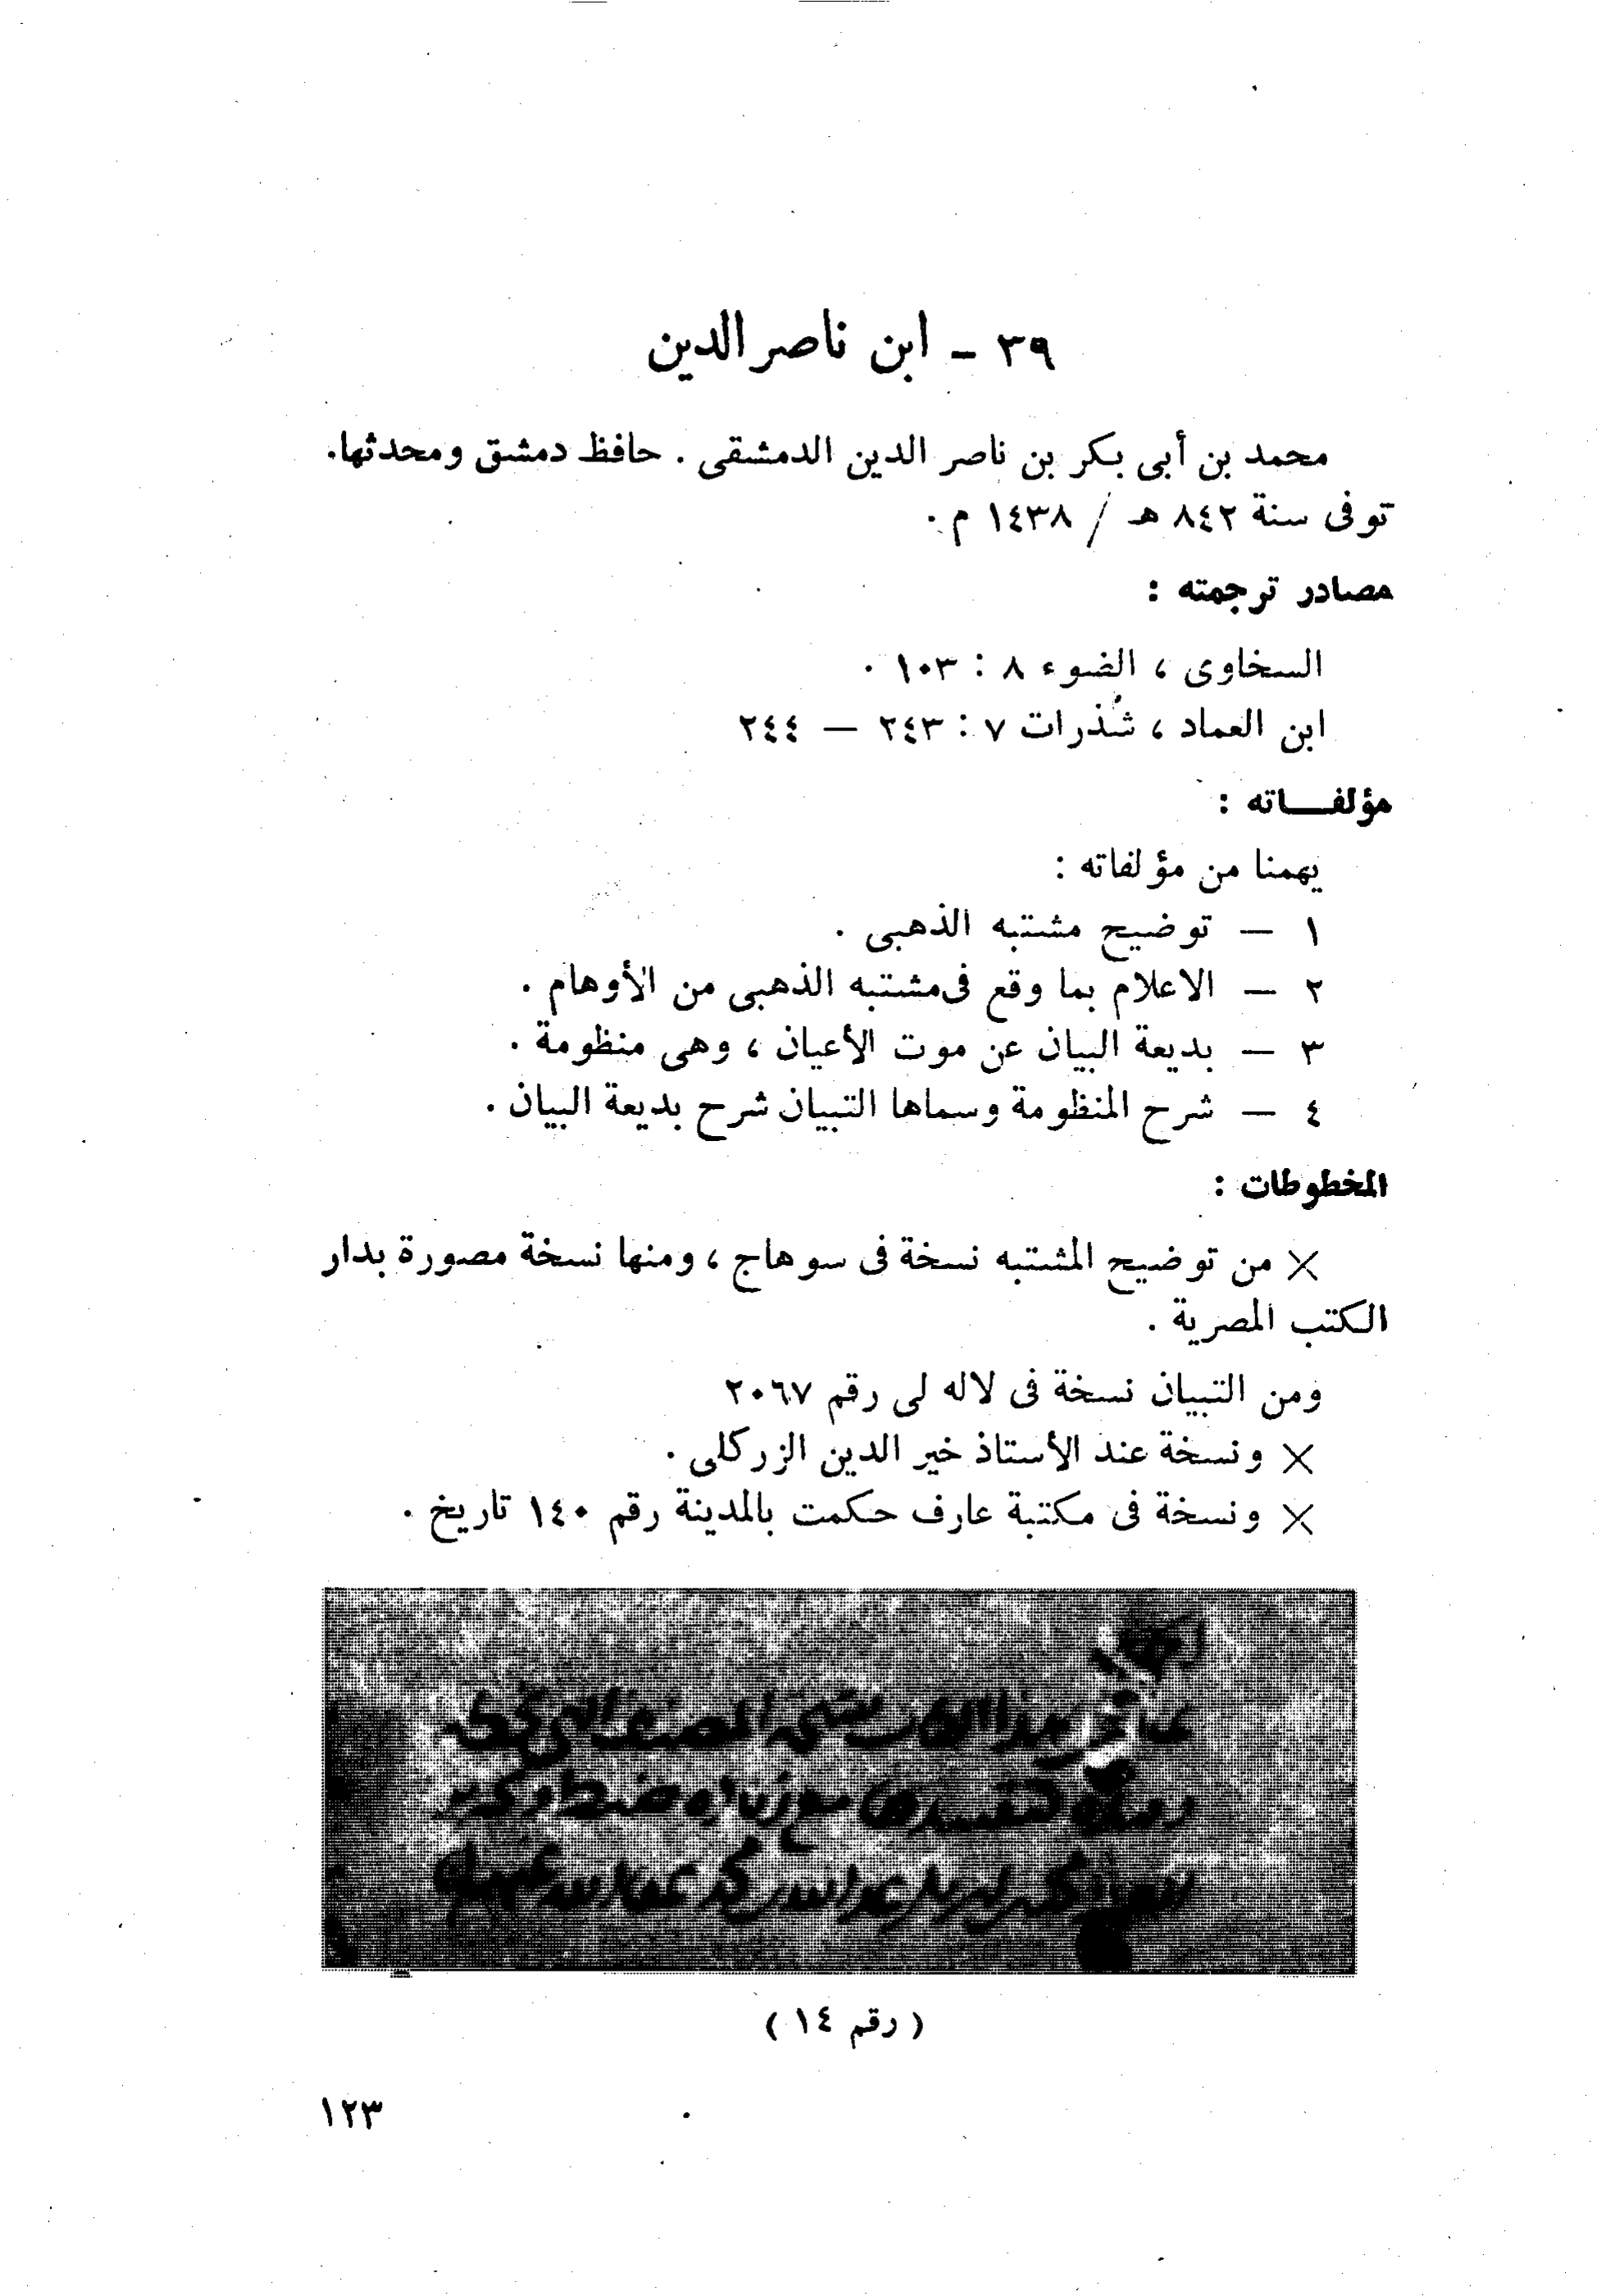 ٣٩ - ابن ناصر الدين
محمد بن أبى بكر بن ناصر الدين الدمشقى . حافظ دمشق ومحدثها.
توفى سنة ٨٤٢ هـ / ١٤٣٨ م .
مصادر ترجمته :
السخاوى ، الضوء ٨ : ١٠٣ .
ابن العماد ، شُذرات ٧ : ٢٤٣ — ٢٤٤
مؤلفـــاته :
يهمنا من مؤلفاته :
١ — توضيح مشتبه الذهبى .
٢ — الاعلام بما وقع فى مشتبه الذهبى من الأوهام .
٣ — بديعة البيان عن موت الأعيان ، وهى منظومة .
٤ — شرح المنظومة وسماها التبيان شرح بديعة البيان .
المخطوطات :
× من توضيح المشتبه نسخة فى سوهاج ، ومنها نسخة مصورة بدار
الكتب المصرية .
ومن التبيان نسخة فى لاله لى رقم ٢٠٦٧
× ونسخة عند الأستاذ خير الدين الزركلى .
× ونسخة فى مكتبة عارف حكمت بالمدينة رقم ١٤٠ تاريخ .
( رقم ١٤ )
١٢٣